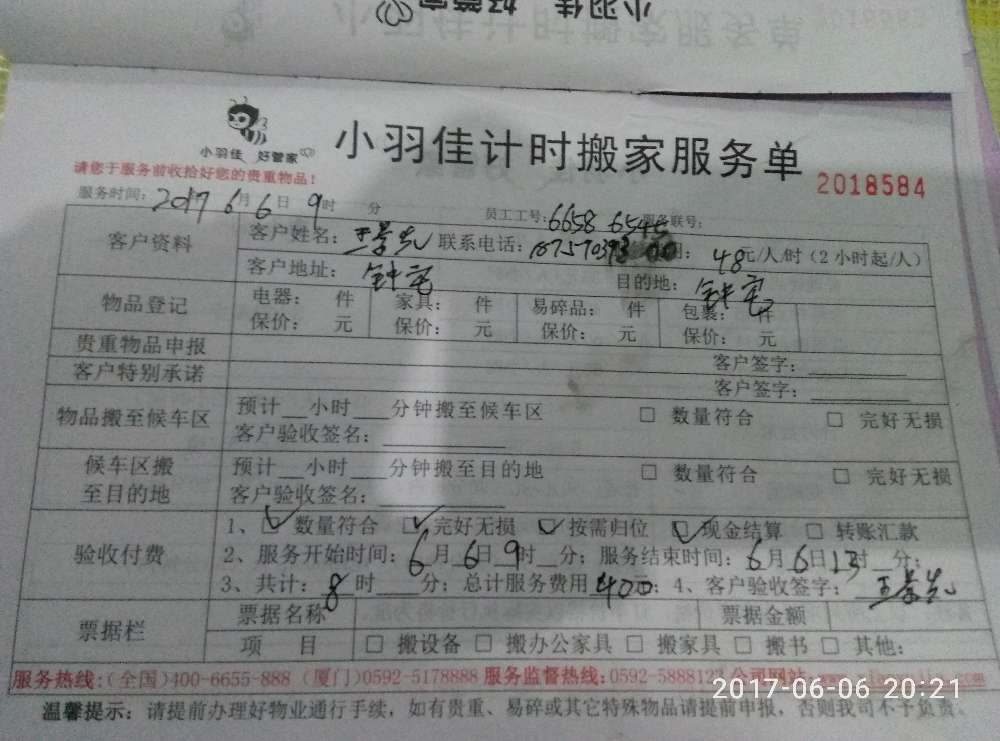 小羽佳 好管家
小羽佳计时搬家服务单
小羽佳 好管家
小羽佳计时搬家服务单
2018584
请您于服务前收拾好您的贵重物品！
服务时间：2017 6月6日9时 分 员工工号：6658 6545 服务联号：
客户资料 客户姓名：王景先 联系电话： 48元/人/时（2小时起/人）
客户地址：钟宅 目的地：钟宅
物品登记 电器： 件 家具： 件 易碎品： 件 包装： 件
保价： 元 保价： 元 保价： 元 保价： 元
贵重物品申报 客户签字：
客户特别承诺 客户签字：
物品搬至候车区 预计__小时___分钟搬至候车区 □ 数量符合 □ 完好无损
客户验收签名：
候车区搬至目的地 预计__小时___分钟搬至目的地 □ 数量符合 □ 完好无损
客户验收签名：
验收付费 1、☑ 数量符合 ☑ 完好无损 ☑ 按需归位 ☑ 现金结算 □ 转账汇款
2、服务开始时间：6月6日9时__分；服务结束时间：6月6日13时__分；
3、共计：8时___分；总计服务费用400；4、客户验收签字：王景先
票据栏 票据名称 票据金额
项 目 □ 搬设备 □ 搬办公家具 □ 搬家具 □ 搬书 □ 其他：
服务热线：（全国）400-6655-888（厦门）0592-5178888 服务监督热线：0592-588812 公司网站
2017-06-06 20:21
温馨提示：请提前办理好物业通行手续，如有贵重、易碎或其它特殊物品请提前申报，否则我司不予负责。